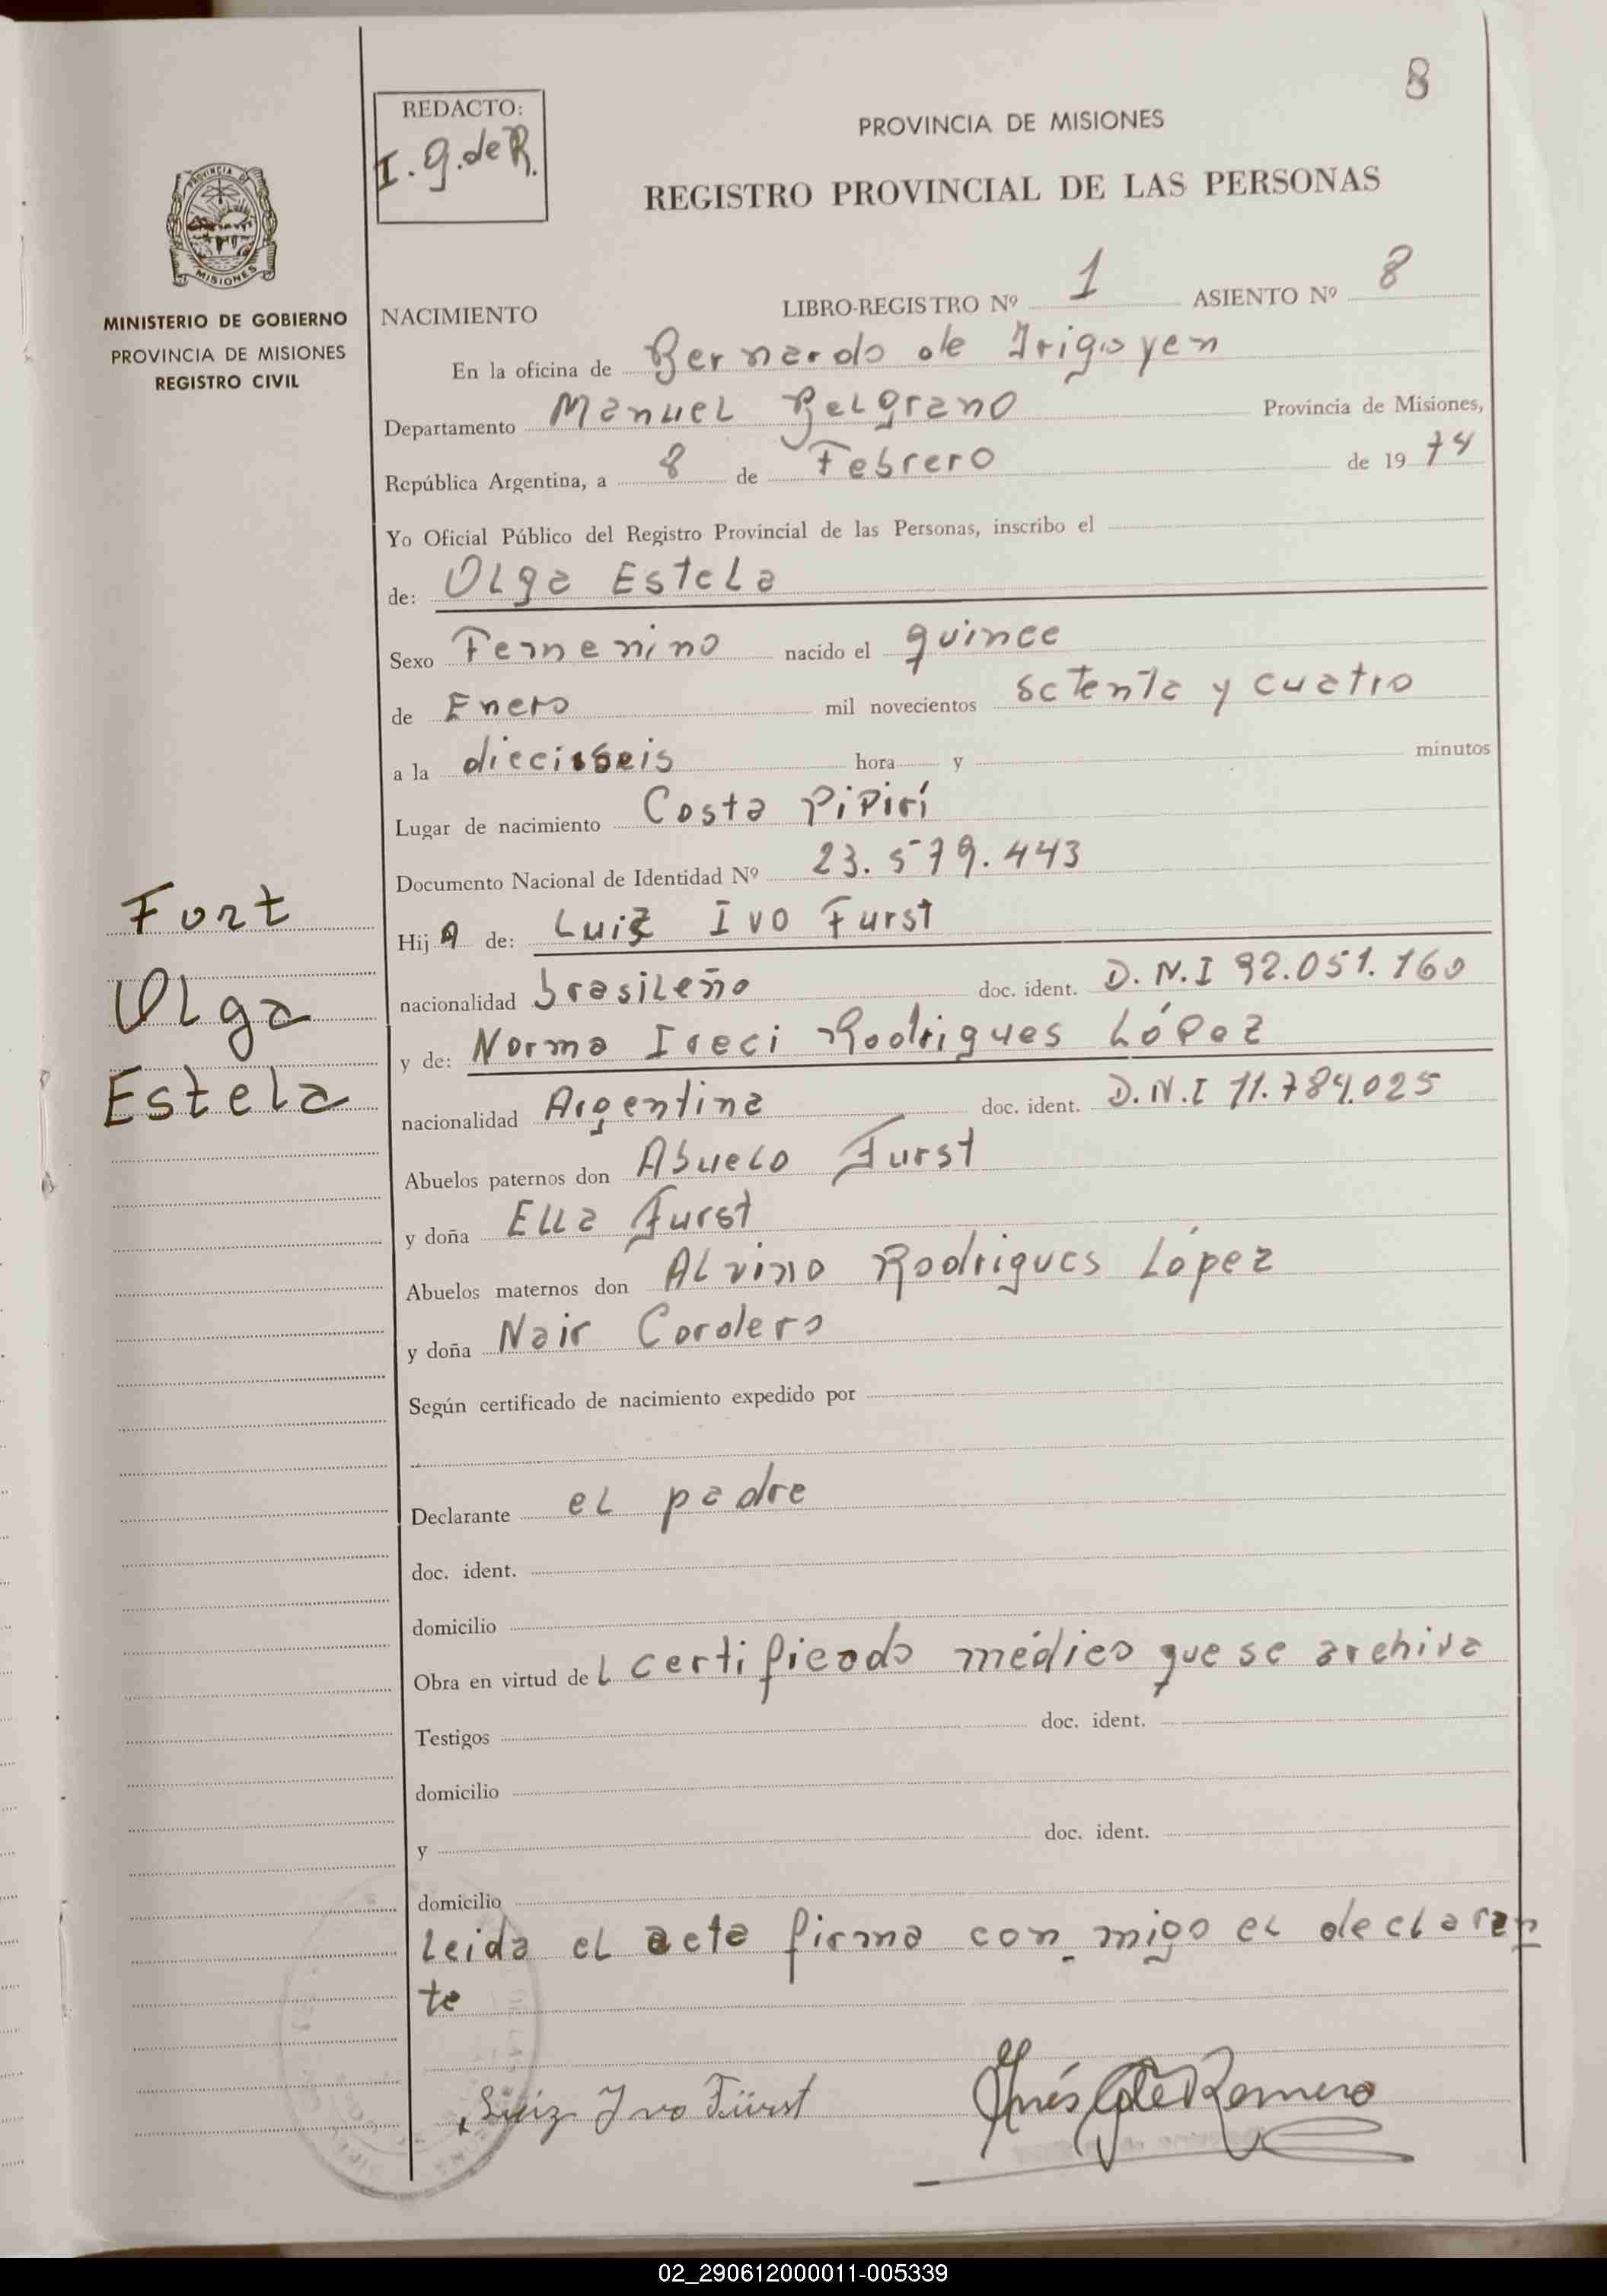 8
REDACTO:
I. G. de R.
PROVINCIA DE MISIONES
REGISTRO PROVINCIAL DE LAS PERSONAS
PROVINCIA DE
MISIONES
MINISTERIO DE GOBIERNO
PROVINCIA DE MISIONES
REGISTRO CIVIL
NACIMIENTO LIBRO-REGISTRO Nº 1 ASIENTO Nº 8
En la oficina de Bernardo de Irigoyen
Departamento Manuel Belgrano Provincia de Misiones,
República Argentina, a 8 de Febrero de 1974
Yo Oficial Público del Registro Provincial de las Personas, inscribo el
de: Olga Estela
Sexo Femenino nacido el quince
de Enero mil novecientos setenta y cuatro
a la dieciseis hora y minutos
Lugar de nacimiento Costa Pipirí
Documento Nacional de Identidad Nº 23.579.443
Hija de: Luiz Ivo Furst
nacionalidad brasileño doc. ident. D.N.I 92.051.160
y de: Norma Ireci Rodrigues López
nacionalidad Argentina doc. ident. D.N.I 11.784.025
Abuelos paternos don Abuelo Furst
y doña Ella Furst
Abuelos maternos don Alvino Rodrigues López
y doña Nair Cordero
Según certificado de nacimiento expedido por
Declarante el padre
doc. ident.
domicilio
Obra en virtud del certificado médico que se archiva
Testigos doc. ident.
domicilio
y doc. ident.
domicilio
Leida el acta firma con migo el declaran
te
Luiz Ivo Fürst Inés G de Romero
Furt
Olga
Estela
02_290612000011-005339